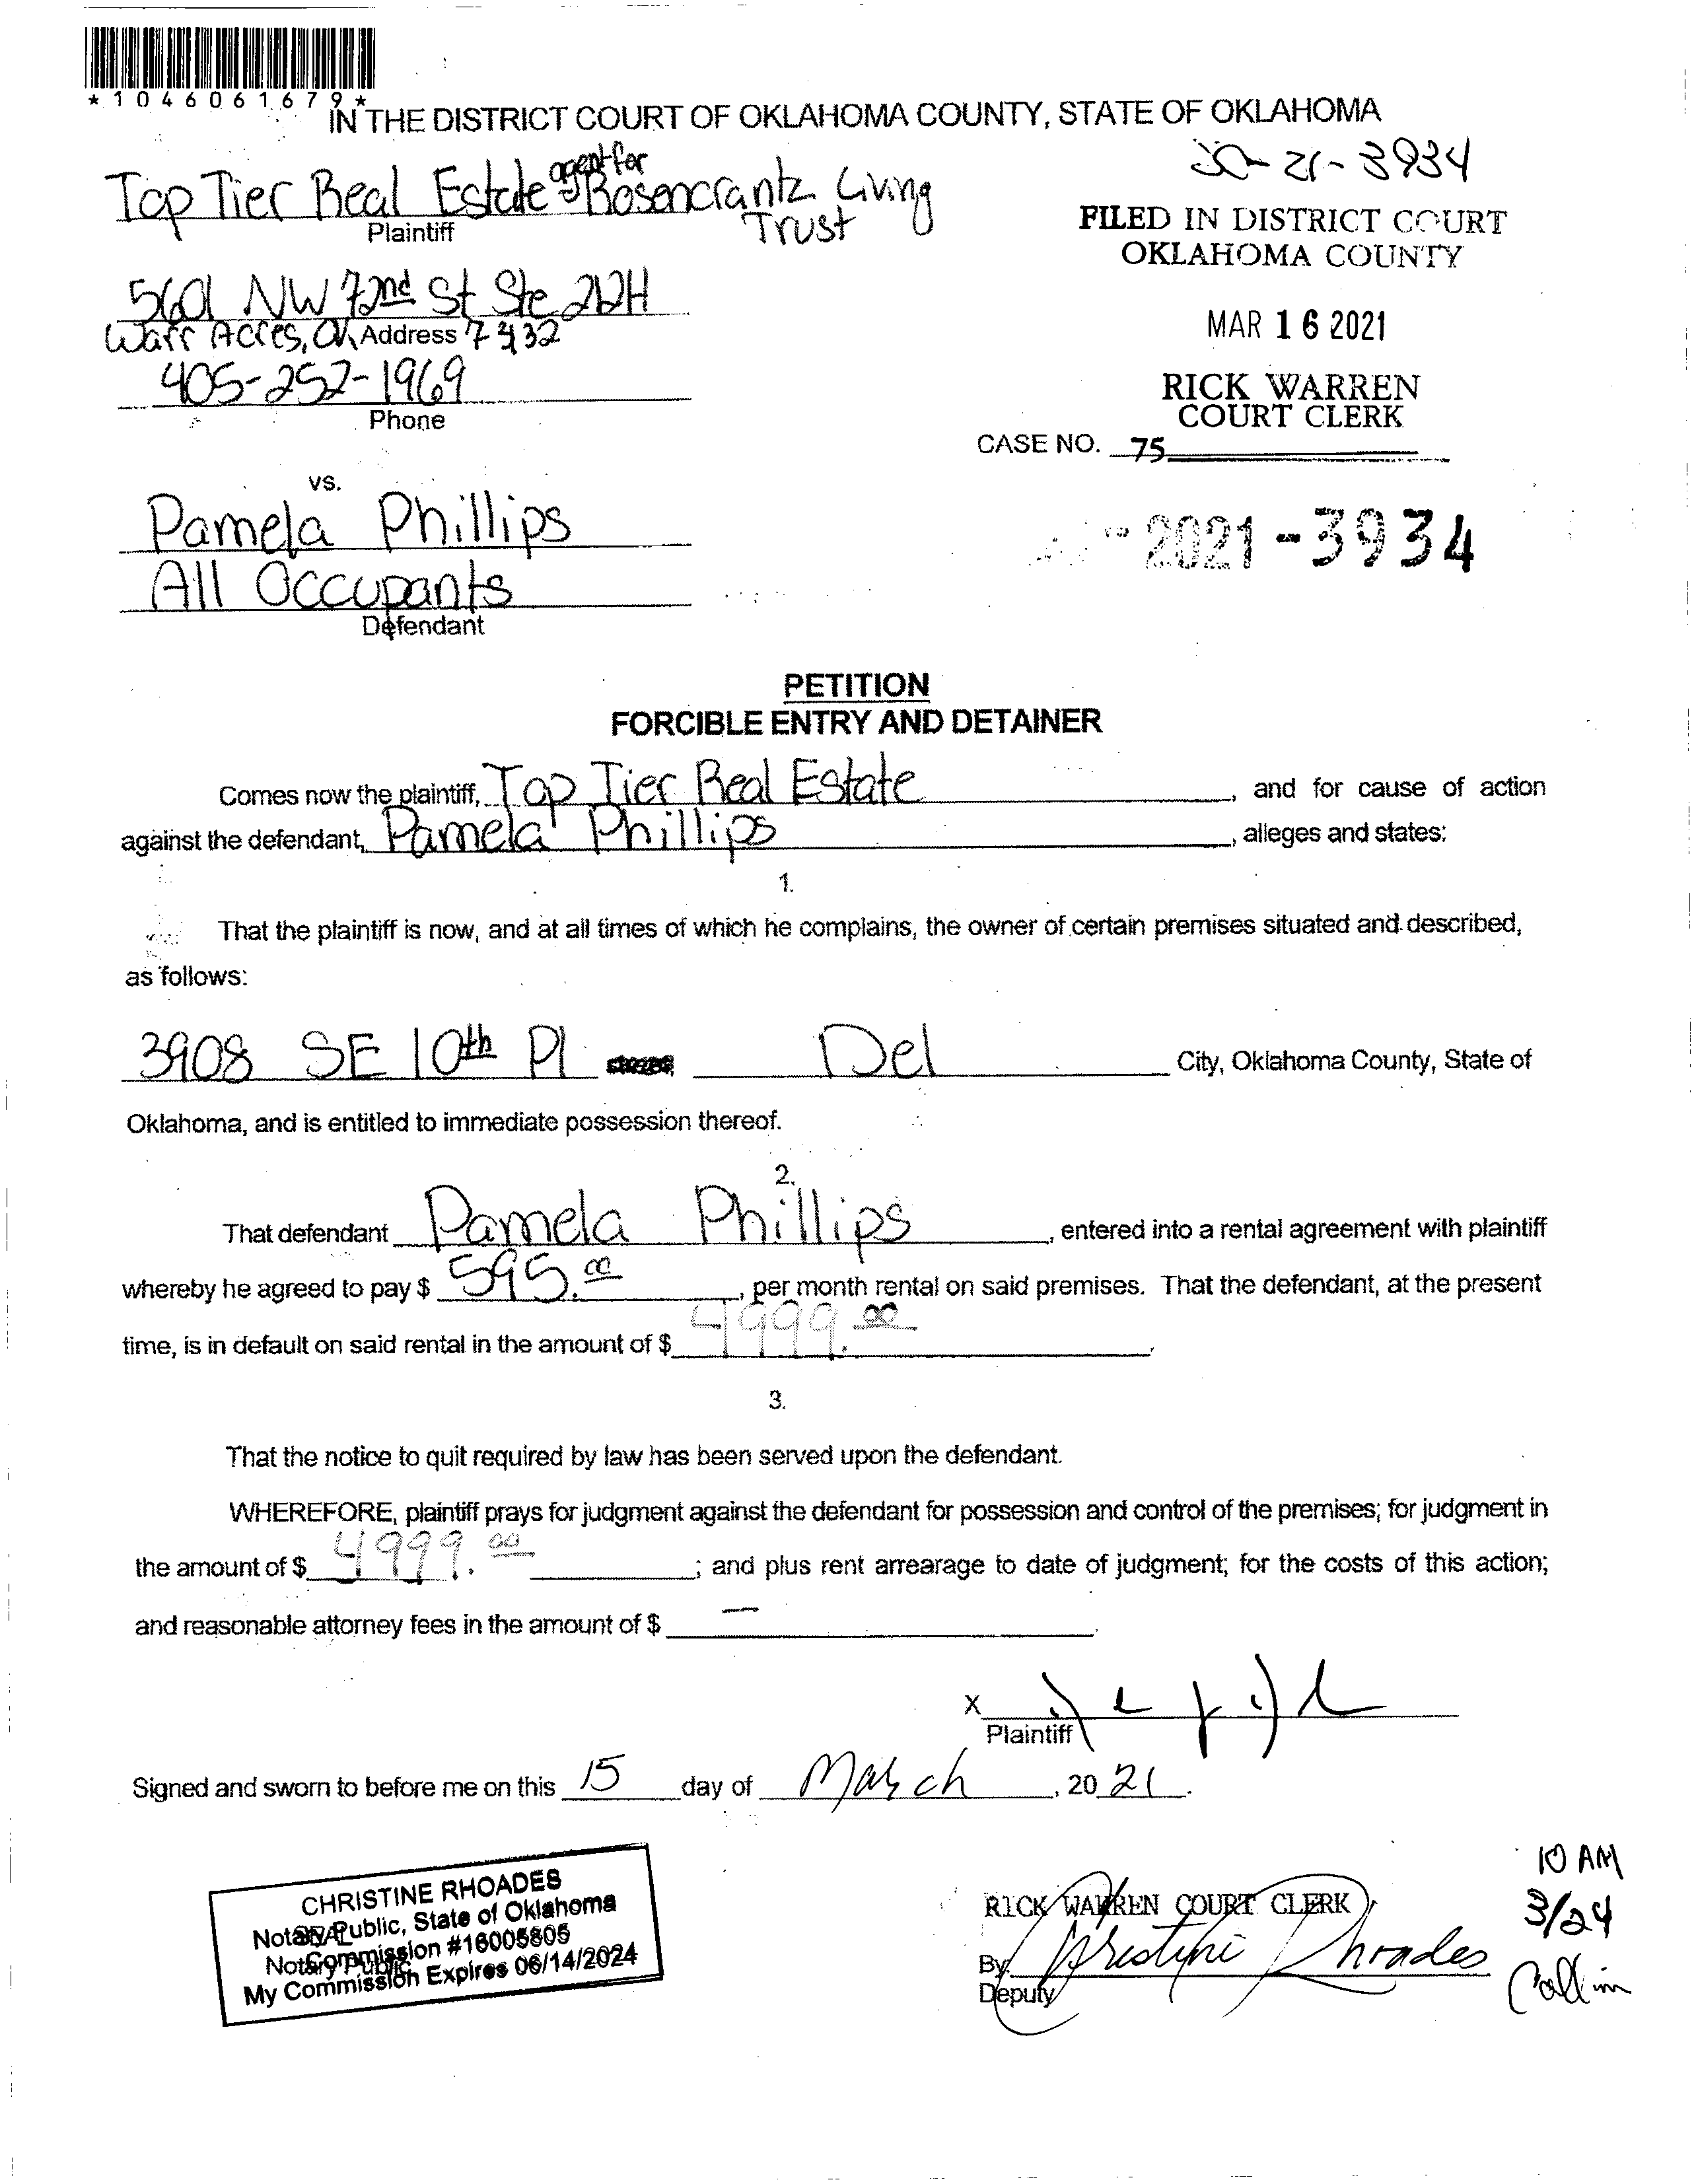 *1046061679*
IN THE DISTRICT COURT OF OKLAHOMA COUNTY, STATE OF OKLAHOMA
Top Tier Real Estate agent for Rosencrantz Living
Trust
Plaintiff
21-3934
FILED IN DISTRICT COURT
OKLAHOMA COUNTY
5601 NW 72nd St Ste 212H
Warr Acres, OK Address
MAR 16 2021
405-252-1969
Phone
RICK WARREN
COURT CLERK
CASE NO. 75
vs.
Pamela Phillips
-2021-3934
All Occupants
Defendant
PETITION
FORCIBLE ENTRY AND DETAINER
Comes now the plaintiff, Top Tier Real Estate, and for cause of action
against the defendant, Pamela Phillips, alleges and states:
1.
That the plaintiff is now, and at all times of which he complains, the owner of certain premises situated and described,
as follows:
3908 SE 10th Pl Del City, Oklahoma County, State of
Oklahoma, and is entitled to immediate possession thereof.
2.
That defendant Pamela Phillips, entered into a rental agreement with plaintiff
whereby he agreed to pay $ 595.00, per month rental on said premises. That the defendant, at the present
time, is in default on said rental in the amount of $ 4999.00.
3.
That the notice to quit required by law has been served upon the defendant.
WHEREFORE, plaintiff prays for judgment against the defendant for possession and control of the premises; for judgment in
the amount of $ 4999.00; and plus rent arrearage to date of judgment; for the costs of this action;
and reasonable attorney fees in the amount of $ —
X
Plaintiff
Signed and sworn to before me on this 15 day of March, 2021.
CHRISTINE RHOADES
Notary Public, State of Oklahoma
Commission #16005805
My Commission Expires 06/14/2024
SEAL
Notary Public
RICK WARREN COURT CLERK
By Christine Rhoades
Deputy
10 AM
3/24